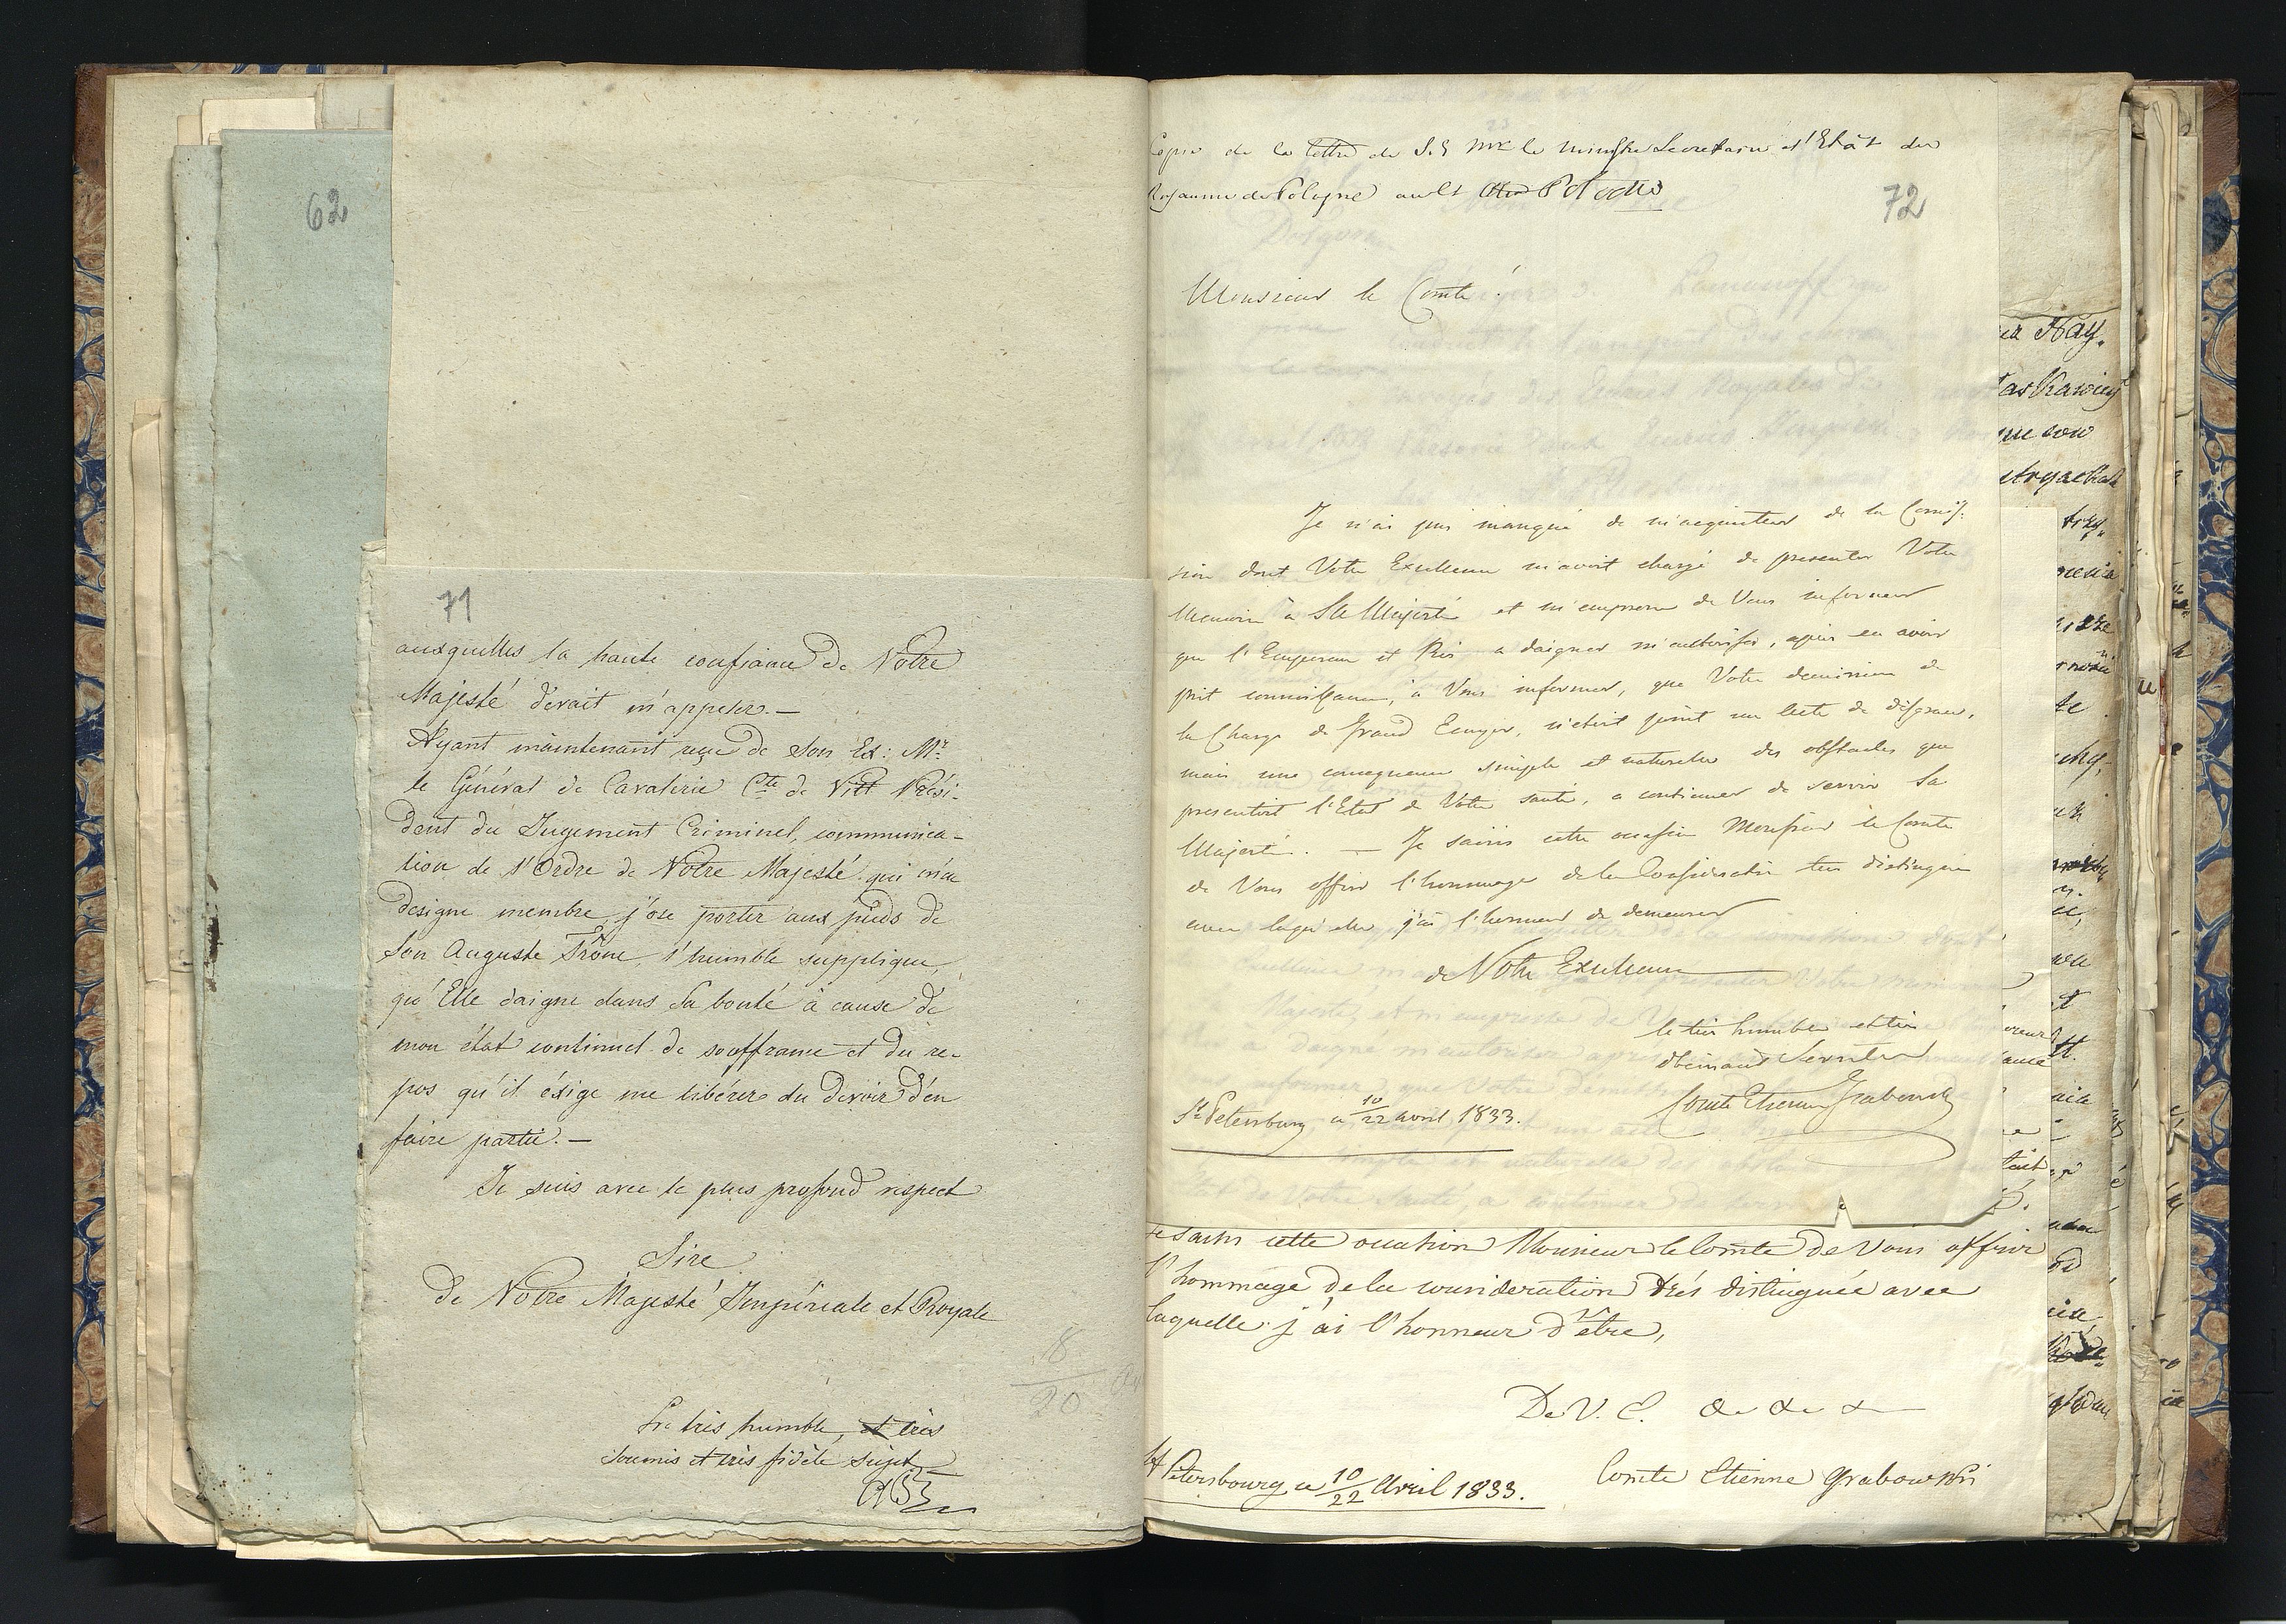 62
71
auxquelles la haute confiance de Votre
Majesté devait m'appeler. —
Ayant maintenant reçu de Son Ex: Mr.
le Général de Cavalerie Cte de Vitt Prési-
dent du Jugement Criminel, communica-
tion de l'Ordre de Votre Majesté qui m'en
designe membre, j'ose porter aux pieds de
Son Auguste Trône, l'humble supplique,
qu'Elle daigne dans Sa bonté à cause de
mon état continuel de souffrance et du re-
pos qu'il éxige me libérer du devoir d'en
faire partie. —
Je suis avec le plus profond respect
Sire
de Votre Majesté Impériale et Royale
18
20
Le très humble, et très
soumis et très fidèle sujet
72
Copie de la lettre de S. E Mr le Ministre Secretaire d'Etât du
Royaume de Pologne au Ct Potocki
Monsieur le Comte!
Je n'ai pas manqué de m'acquitter de la Comis-
sion dont Votre Excellence m'avoit chargé de presenter Votre
Memoire à Sa Majesté et m'empresse de Vous informer
que l'Empereur et Roi a daigner m'authoriser, après en avoir
prit connaissance, à Vous informer, que Votre demission de
la Charge de Grand Ecuyer, n'etoit point un acte de disgrace,
mais une consequence simple et naturelle des obstacles que
presentoit l'Etat de Votre santé, a continuer de servir Sa
Majesté. — Je saisis cette occasion Monsieur le Comte
de Vous offrir l'hommage de la Consideration tres distinguée
avec laquelle j'ai l'honneur de demeurer
de Votre Excellence
le tres humble et tres
obeissant Serviteur
Comte Etienne Grabowski
St. Petersburg a 10/22 avril 1833.
Je saisis cette occasion Monsieur le Comte de Vous offrir
l'hommage de la consideration très distinguée avec
laquelle j'ai l'honneur d'être,
De V. E. &c &c &c
St Petersbourg a 10/22 Avril 1833.
Comte Etienne Grabowski